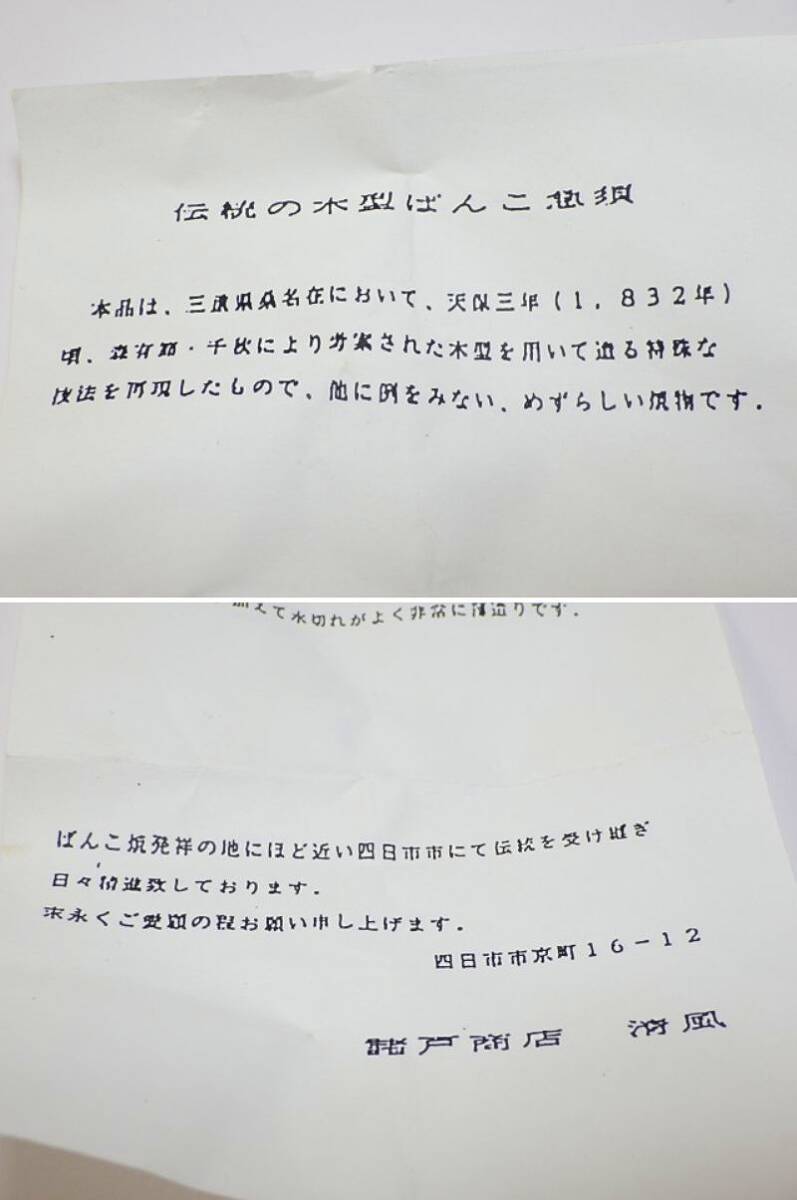 伝統の木型ばんこ急須
本品は、三重県桑名在において、天保三年(1,832年)
頃、森有節・千秋により考案された木型を用いて造る特殊な
技法を再現したもので、他に例をみない、めずらしい焼物です.
えて水切れがよく非常に薄造りです.
ばんこ焼発祥の地にほど近い四日市市にて伝統を受け継ぎ
日々精進致しております.
末永くご愛顧の程お願い申し上げます.
四日市市京町16-12
戸商店 風